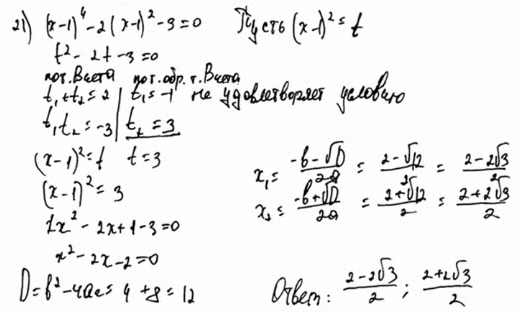 21) (x-1)⁴-2(x-1)²-3=0 Пусть (x-1)²=t
t²-2t-3=0
по т. Виета по т. обр. т. Виета
t₁+t₂=2 | t₁=-1 не удовлетворяет условию
t₁t₂=-3 | t₂=3
(x-1)²=t t=3
(x-1)²=3
1x²-2x+1-3=0
x²-2x-2=0
D=b²-4ac=4+8=12
x₁=(-b-√D)/2a=(2-√12)/2=(2-2√3)/2
x₂=(-b+√D)/2a=(2+√12)/2=(2+2√3)/2
Ответ: (2-2√3)/2; (2+2√3)/2